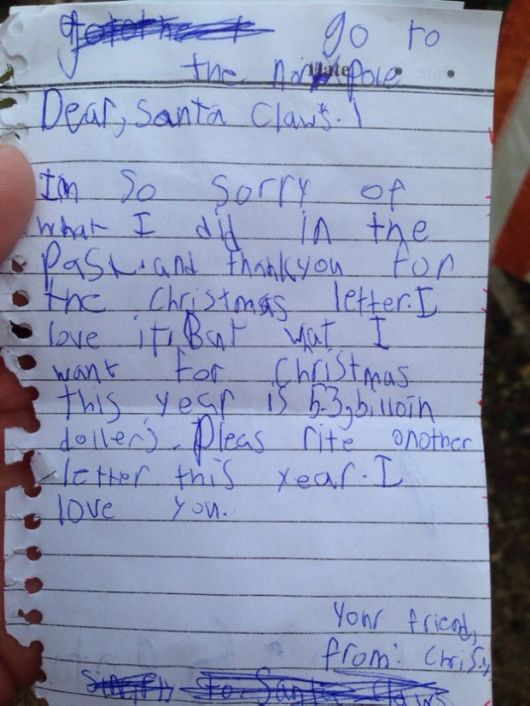 go to
the nor pole
Dear, Santa Claws.
Im so sorry of
what I did in the
past. and thankyou for
the Christmas letter. I
love it, But wat I
want for Christmas
this year is 53, billoin
dollers. Pleas rite onother
letter this year. I
love you.
Your friend,
from: Chris